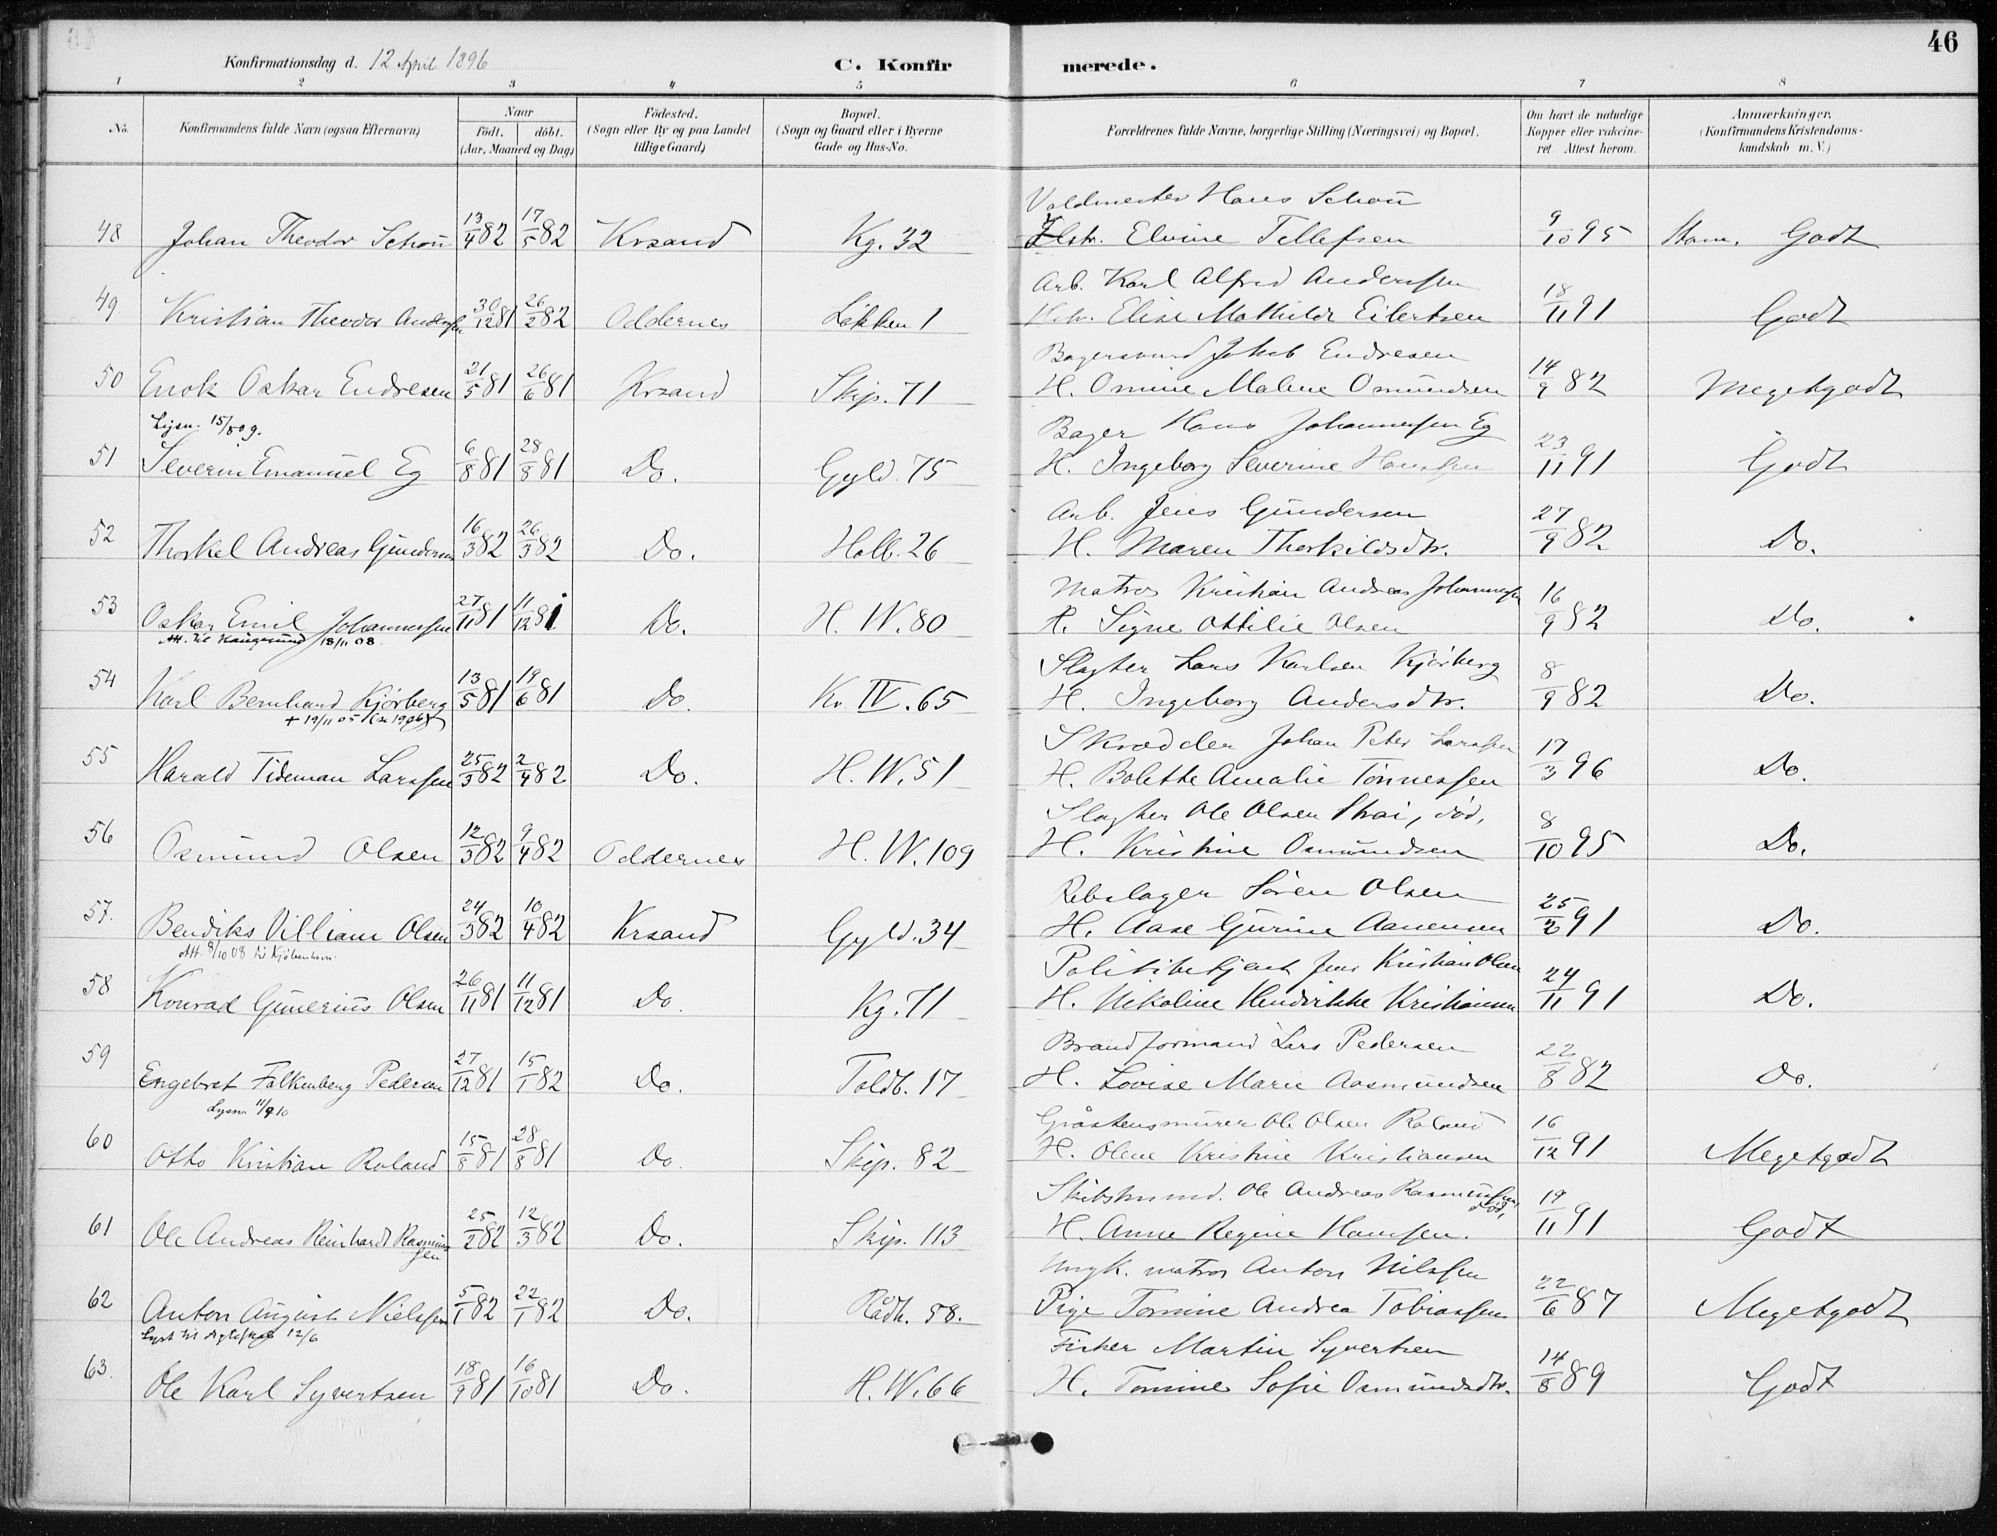 46
Konfirmationsdag d. 12 April 1896 C. Konfir merede.
1 2 3 4 5 6 7 8
No. Konfirmandens fulde Navn (ogsaa Efternavn) Naar født. døbt. (Aar, Maaned og Dag) Fødested. (Sogn eller By og paa Landet tillige Gaard) Bopæl. (Sogn og Gaard eller i Byerne Gade og Hus-No. Forældrenes fulde Navne, borgerlige Stilling (Næringsvei) og Bopæl. Om havt de naturlige Kopper eller vakcineret. Attest herom. Anmærkninger. (Konfirmandens Kristendomskundskab m. V.)
Hans Schou
48 Johan Theodor Schou 13/4 82 17/5 82 Krsand Kg. 32 Elvine Tellefsen 9/10 95 Godt
Arb. Karl Alfred Anderssen
49 Kristian Theodor Anderssen 30/12 81 26/2 82 Oddernes Løkken 1 Elise Mathilde Eilertsen 18/11 91 Godt
Bagersvend Jakob Endresen
50 Enok Oskar Endresen 21/5 81 26/6 81 Krsand Skip. 71 H. Omine Malene Osmundsen 14/9 82 Megetgodt
Bager Hans Johannessen Eg
51 Severin Emanuel Eg 6/8 81 28/8 81 Do. Gyld. 75 H. Ingeborg Severine Hanssen 23/11 91 Godt
Arb. Jens Gundersen
52 Thorkel Andreas Gundersen 16/3 82 26/3 82 Do. Holb. 26 H. Maren Thorkildsdtr. 27/9 82 Do.
Matros Kristian Andreas Johannessen
53 Oskar Emil Johannessen 27/11 81 11/12 81 Do. H. W. 80 H. Signe Ottilie Olsen 16/9 82 Do.
Att. til Haugesund 18/11 08
Slagter Lars Karlsen Kjørberg
54 Karl Bernhard Kjørberg 13/5 81 19/6 81 Do. Kv IV. 65 H. Ingeborg Andersdtr. 8/9 82 Do.
+ 19/11 05
Skrædder Johan Peter Larssen
55 Harald Tideman Larssen 25/3 82 2/4 82 Do. H. W. 51 H. Bolette Amalie Tønnessen 17/3 96 Do.
Slagter Ole Olsen Strai, død,
56 Osmund Olsen 12/3 82 9/4 82 Oddernes H. W. 109 H. Kristine Osmundsen 8/10 95 Do.
Rebslager Søren Olsen
57. Bendiks Villiam Olsen 24/3 82 10/4 82 Krsand Gyld. 34 H. Aase Gurine Aanensen 25/2 91 Do.
Att. 9/10 08 til Kjøbenhavn.
Politibetjent Jens Kristian Olsen
58 Konrad Gunerius Olsen 26/11 81 11/12 81 Do Kg. 71 H. Nikoline Hendrikke Kristiansen 24/11 91 Do.
Brandformand Lars Pedersen
59 Engebret Falkenberg Pedersen 27/12 81 15/1 82 Do. Toldb. 17 H. Lovise Marie Aasmundsen 22/8 82 Do.
Gråstensmurer Ole Olsen Roland
60 Otto Kristian Roland 15/8 81 28/8 81 Do Skip. 82 H. Olene Kristine Kristiansen 16/12 91 Megetgodt
Ole Andreas Rasmussen, død,
61 Ole Andreas Reinhardt Rasmussen 25/2 82 12/3 82 Do. Skip. 113 H. Anne Regine Hanssen. 19/11 91 Godt
Ungk. matros Anton Nilssen
62 Anton August Nielssen 5/1 82 22/1 82 Do. Rådh. 58. Pige Tomine Andrea Tobiassen 22/6 87 Megetgodt
Fisker Martin Syvertsen
63. Ole Karl Syvertsen 18/9 81 16/10 81 Do. H. W. 66 H. Tomine Sofie Osmundsdtr. 14/8 89 Godt